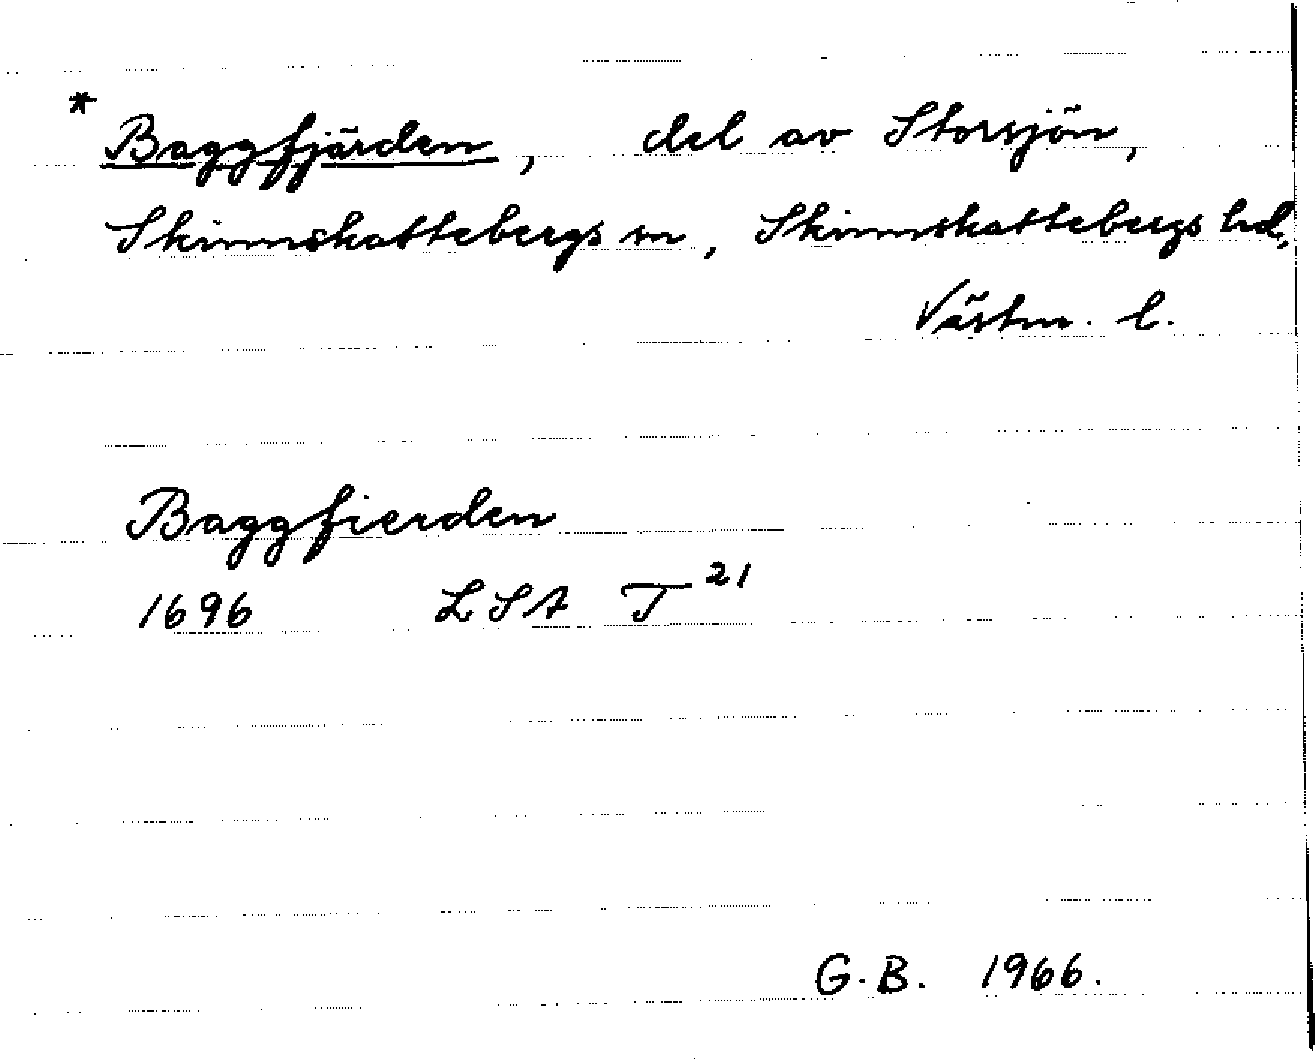 * Baggfjärden, del av Storsjön,
Skinnskattebergs sn, Skinnskattebergs hd,
Västm. l.
Baggfierden
1696 LSA T 21
G.B. 1966.